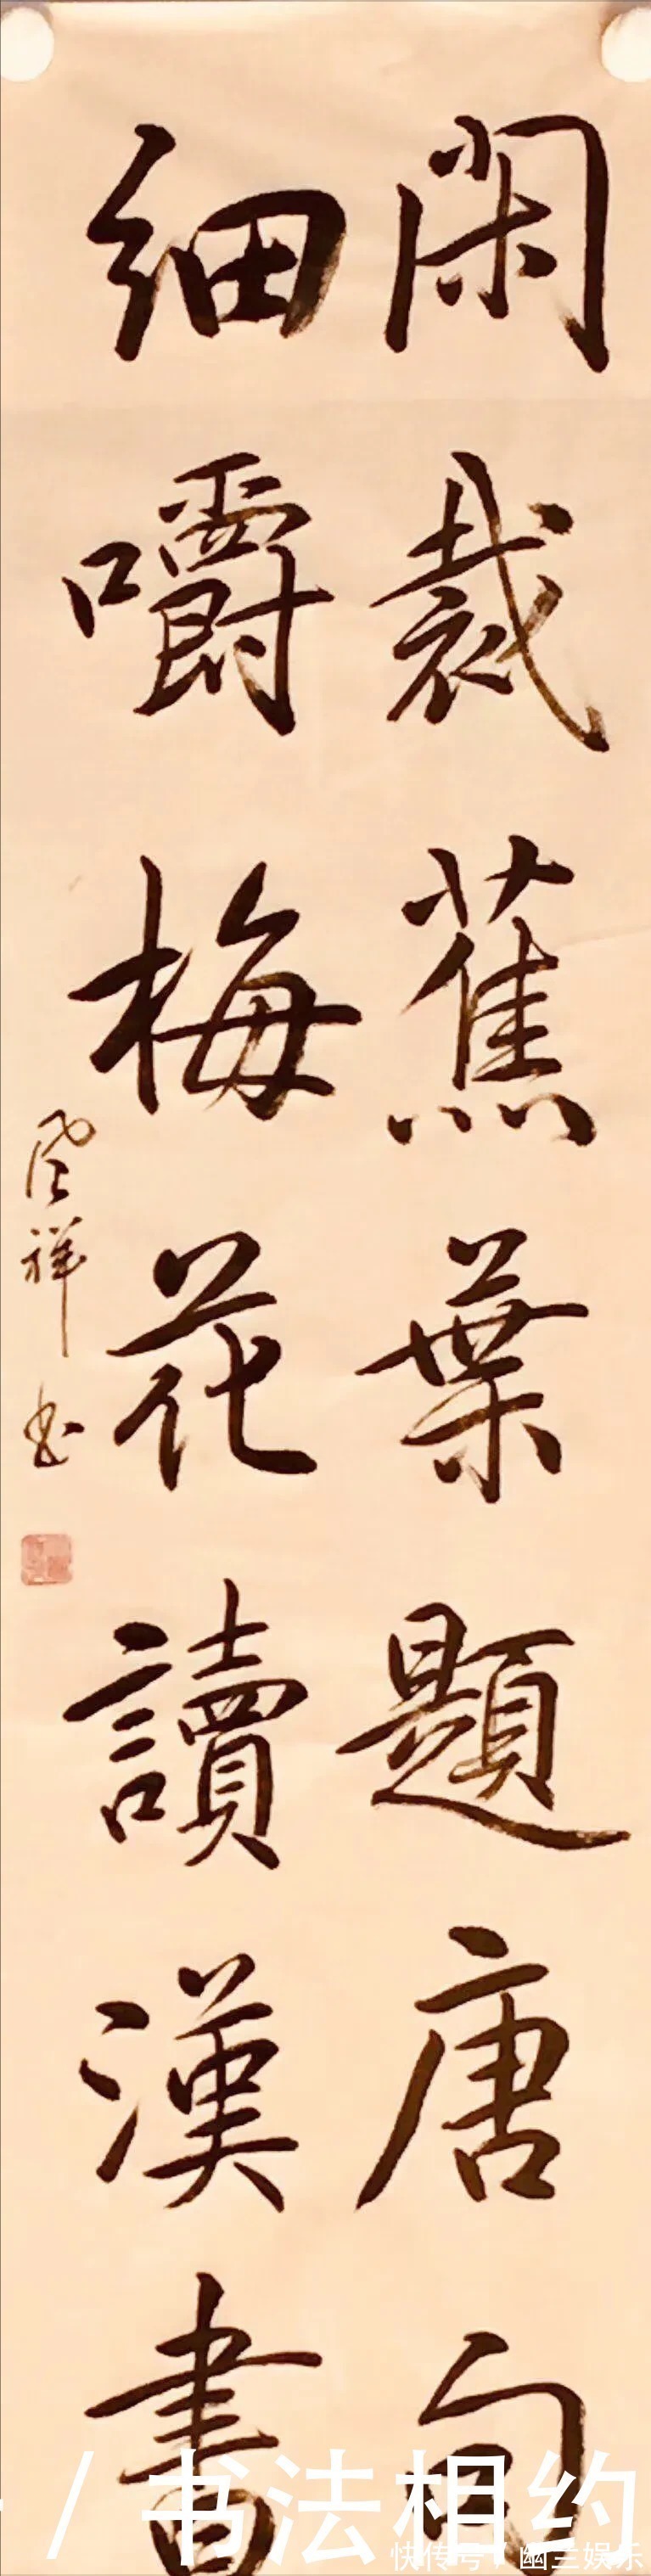 閑裁蕉葉題唐句
細嚼梅花讀漢書
风祥书
/ 书法相约
快传号 / 幽兰娱乐